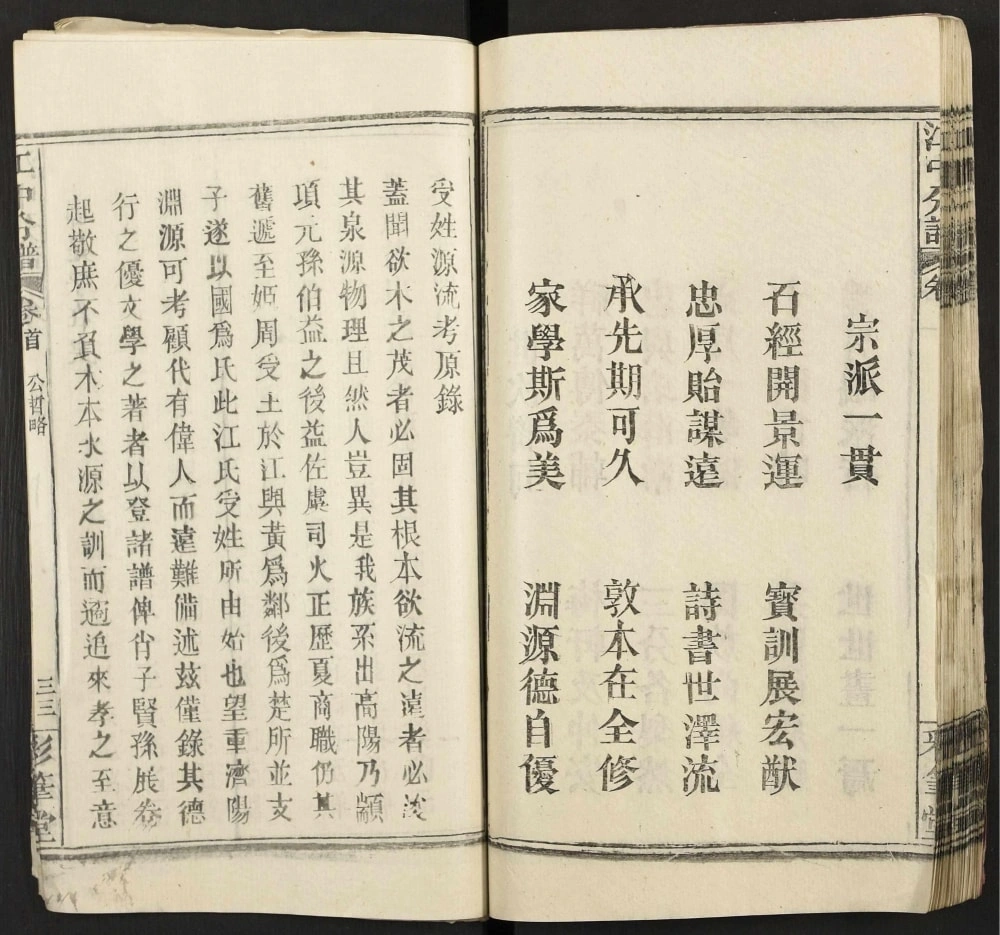 宗派一貫
石經開景運　寳訓展宏猷
忠厚貽謀遠　詩書世澤流
承先期可久　敦本在全修
家學斯爲美　淵源德自優
受姓源流考原錄
蓋聞欲木之茂者必固其根本欲流之遠者必浚
其泉源物理且然人豈異是我族系出高陽乃顓
項元孫伯益之後益佐虞司火正歷夏商職仍其
舊遞至姬周受土於江與黃爲鄰後爲楚所並支
子遂以國爲氏此江氏受姓所由始也望重濟陽
淵源可考顧代有偉人而遠難備述兹僅錄其德
行之優文學之著者以登諸譜俾肖子賢孫展卷
起敬庶不負木本水源之訓而遹追來孝之至意
分譜　卷首　公哲略　三三　彩筆堂